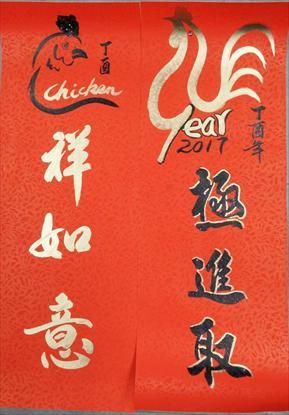 丁酉
Chicken
祥如意
Year
2017
丁酉年
極進取